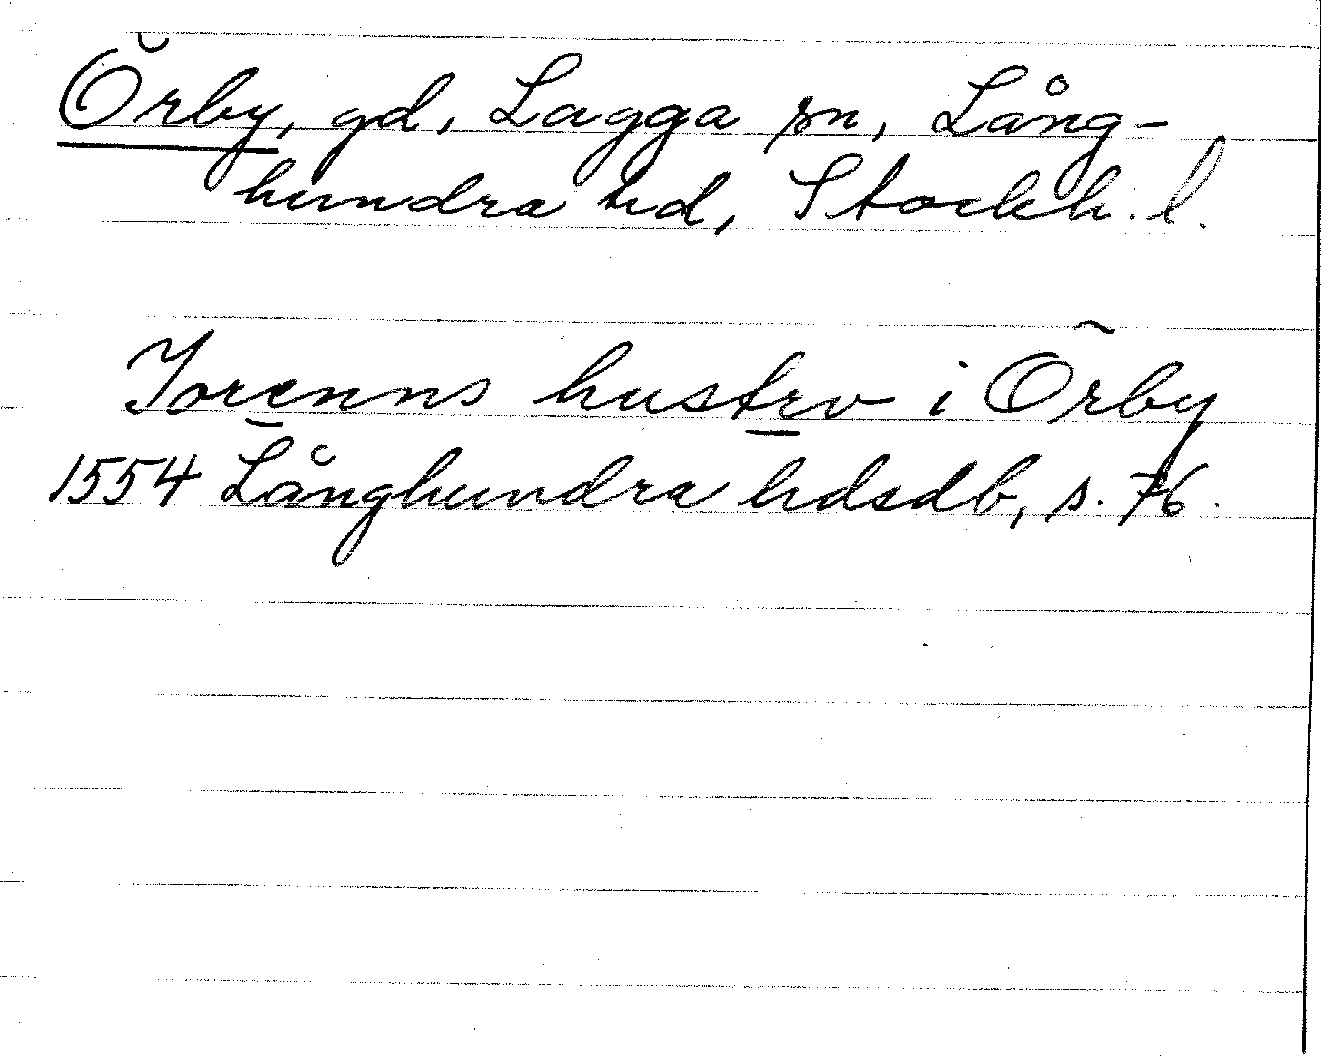 Örby, gd, Lagga sn, Lång-
hundra hd, Stockh. l.
Jorenns hustrv i Örby
1554 Långhundra hdsdb, s. 76.